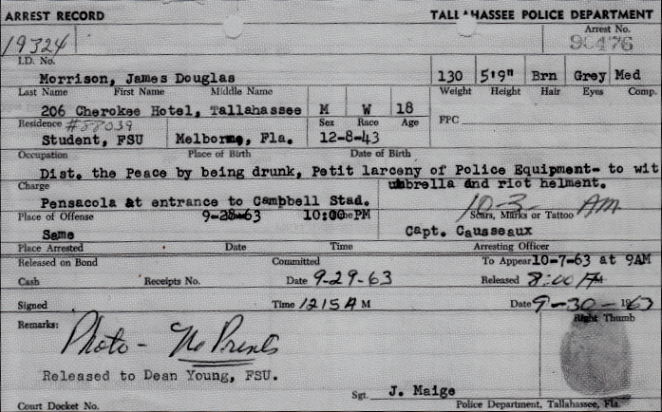 ARREST RECORD TALLAHASSEE POLICE DEPARTMENT
19324 Arrest No.
90476
I.D. No.
Morrison, James Douglas 130 5'9" Brn Grey Med
Last Name First Name Middle Name Weight Height Hair Eyes Comp.
206 Cherokee Hotel, Tallahassee M W 18
Residence #58039 Sex Race Age FPC
Student, FSU Melborne, Fla. 12-8-43
Occupation Place of Birth Date of Birth
Dist. the Peace by being drunk, Petit larceny of Police Equipment- to wit
Charge umbrella and riot helment.
Pensacola at entrance to Campbell Stad. 10-3 AM
Place of Offense 9-28-63 10:00 PM Scars, Marks or Tattoo
Same Capt. Causseaux
Place Arrested Date Time Arresting Officer
Released on Bond Committed To Appear 10-7-63 at 9AM
Cash Receipts No. Date 9-29-63 Released 8:00 AM
Signed Time 1215 A M Date 9-30-1963
Remarks: Photo - No Prints Right Thumb
Released to Dean Young, FSU.
Sgt. J. Maige
Court Docket No. Police Department, Tallahassee, Fla.